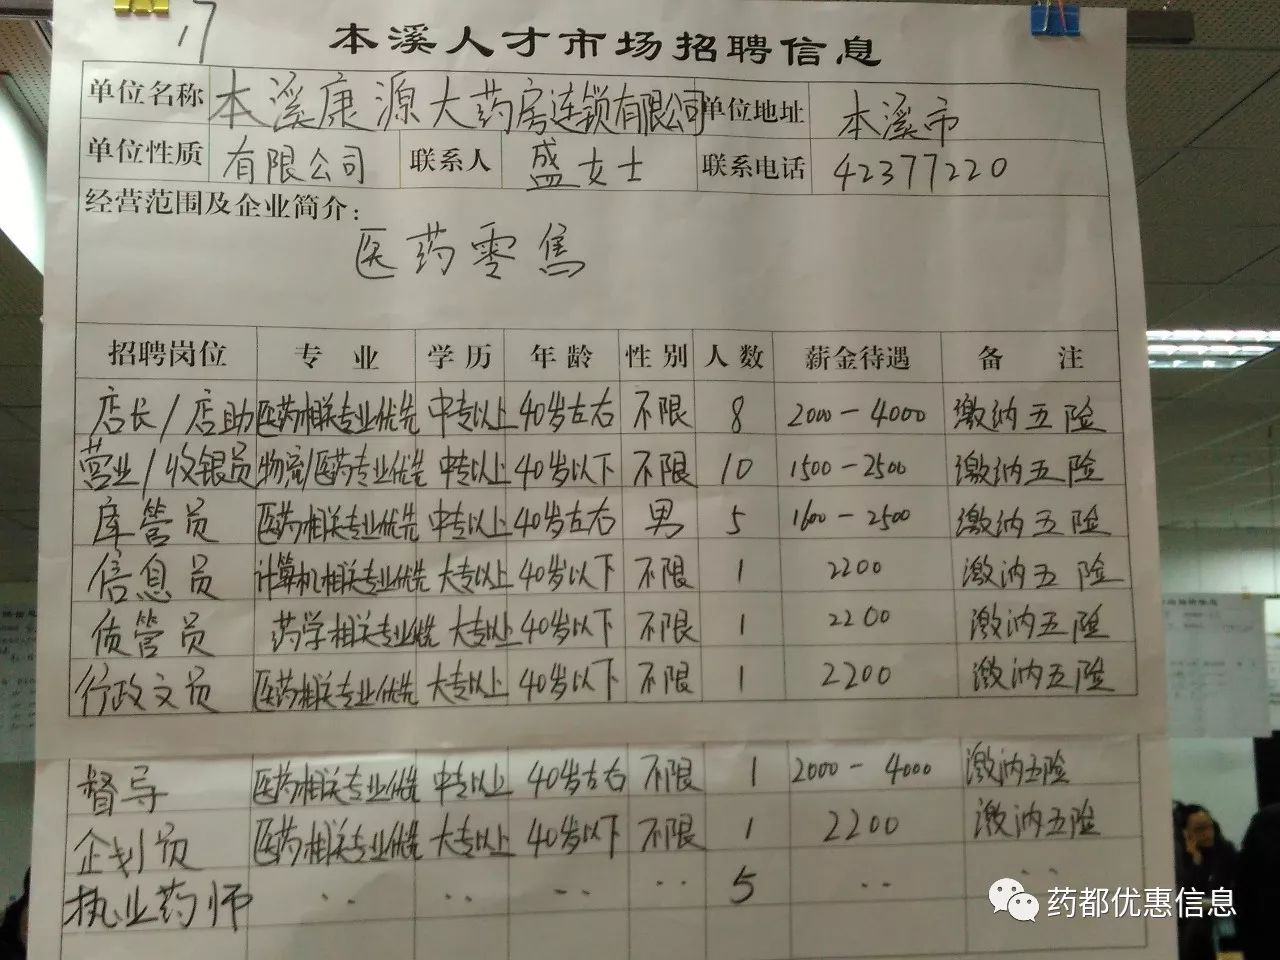 17
本溪人才市场招聘信息
单位名称 本溪康源大药房连锁有限公司 单位地址 本溪市
单位性质 有限公司 联系人 盛女士 联系电话 42377220
经营范围及企业简介：
医药零售
招聘岗位 专业 学历 年龄 性别 人数 薪金待遇 备注
店长/店助 医药相关专业优先 中专以上 40岁左右 不限 8 2000-4000 缴纳五险
营业/收银员 物流/医药专业优先 中专以上 40岁以下 不限 10 1500-2500 缴纳五险
库管员 医药相关专业优先 中专以上 40岁左右 男 5 1600-2500 缴纳五险
信息员 计算机相关专业优先 大专以上 40岁以下 不限 1 2200 缴纳五险
质管员 药学相关专业优先 大专以上 40岁以下 不限 1 2200 缴纳五险
行政文员 医药相关专业优先 大专以上 40岁以下 不限 1 2200 缴纳五险
督导 医药相关专业优先 中专以上 40岁左右 不限 1 2000-4000 缴纳五险
企划员 医药相关专业优先 大专以上 40岁以下 不限 1 2200 缴纳五险
执业药师 ·· ·· ·· ·· 5 ·· ··
药都优惠信息